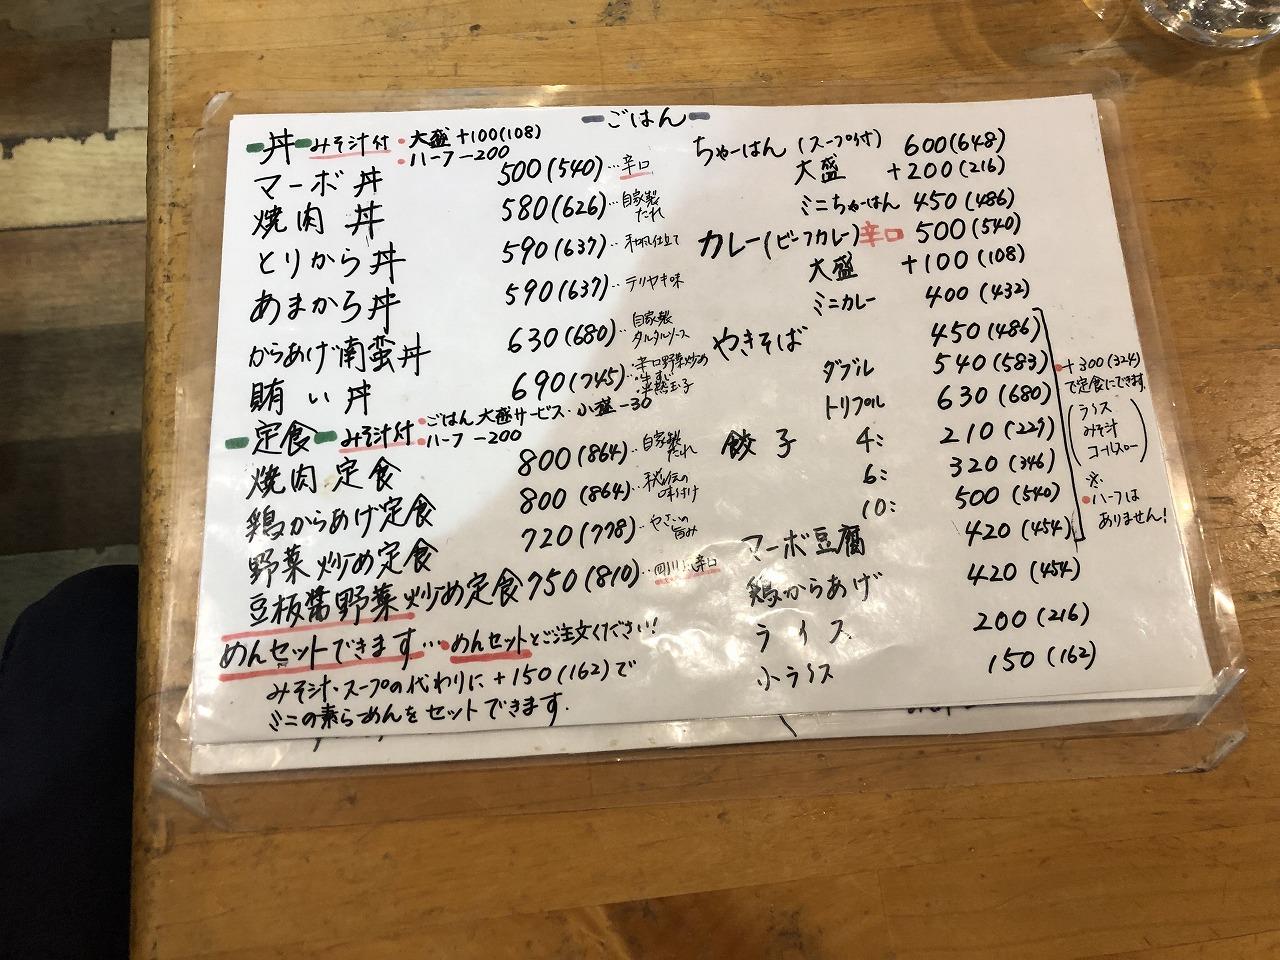 ごはん
丼 みそ汁付 ・大盛 +100(108)
・ハーフ -200
マーボ丼 500(540)…辛口
焼肉丼 580(626)…自家製たれ
とりから丼 590(637)…和風仕立て
あまから丼 590(637)…テリヤキ味
からあげ南蛮丼 630(680)…自家製タルタルソース
賄い丼 690(745)…・辛口野菜炒め ・半熟玉子
定食 みそ汁付 ・ごはん大盛サービス・小盛-30
・ハーフ -200
焼肉定食 800(864)…自家製たれ
鶏からあげ定食 800(864)…秘伝の味付け
野菜炒め定食 720(778)…やさいの旨み
豆板醤野菜炒め定食 750(810)…四川風辛口
めんセットできます…・めんセットとご注文ください!
みそ汁・スープの代わりに+150(162)で
ミニの素らーめんをセットできます.
ちゃーはん(スープ付) 600(648)
大盛 +200(216)
ミニちゃーはん 450(486)
カレー(ビーフカレー)辛口 500(540)
大盛 +100(108)
ミニカレー 400(432)
やきそば 450(486)
ダブル 540(583)
トリプル 630(680)
餃子 4: 210(229)
6: 320(346)
10: 500(540)
マーボ豆腐 420(454)
鶏からあげ 420(454)
ライス 200(216)
小ライス 150(162)
・+300(324)
で定食にできます.
(ライス
みそ汁
コールスロー)
※
・ハーフは
ありません!